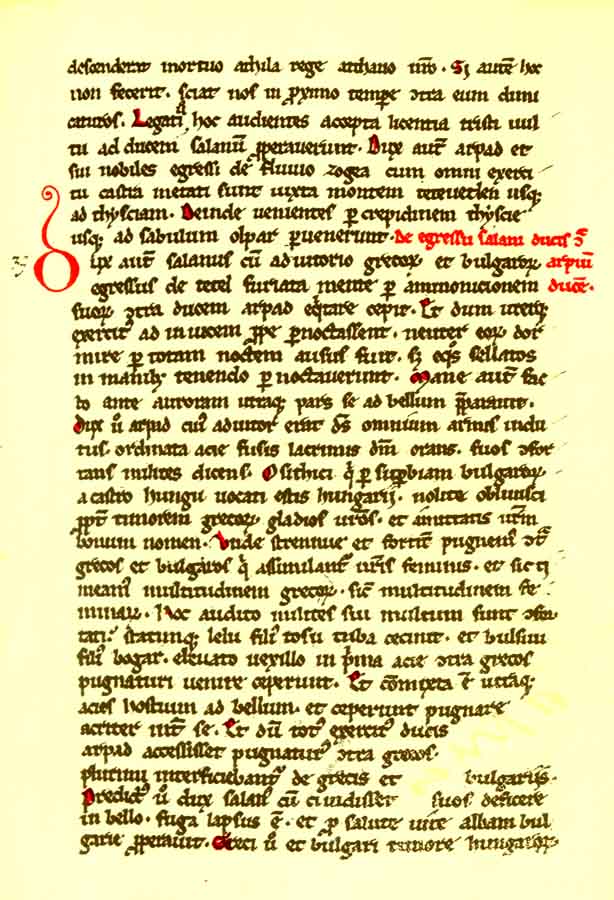 descenderat mortuo athila rege atthauo nr̄o. Si autē hoc
non fecerit. sciat nos in p̱ximo tempe ↄtra eum dimi
caturos. Legati hoc audientes accepta licentia tristi uul
tu ad ducem salanū p̱perauerunt. Dux aut̄ arpad et
sui nobiles egressi de fluuio zogea cum omni exerci
tu castra metati sunt iuxta montem teteuetlen usq;
ad thysciam. Deinde uenientes p̱ crepidinem thyscie
usq; ad sabulum olpar p̱uenerunt. De egressu salani ducis ↄ̄
Dux aut̄ salanus cū adiutorio grecoꝝ et bulgaroꝝ arpiuī
egressus de tetel furiata mente p̱ ammonicionem ducē.
suoꝝ ↄtra ducem arpad eqͥtare cepit. Et dum uterq;
exercitꝰ ad inuicem ꝓpe p̱noctassent. neuter eoꝝ dor
mire p̱ totam noctem ausus fuit. sꝫ eqͦs sellatos
in manibꝫ tenendo p̱noctauerunt. Mane aut̄ fac
to ante auroram utraq; pars se ad bellum p̄parauit.
Dux ů arpad cuiꝰ adiutor erat dꝰs omnium armis indu
tus. ordinata acie fusis lacrimis dm̄ orans. suos ↄfor
tans milites dicens. O sithici qͥ p̱ supbiam bulgaroꝝ
a castro hungu uocati estis hungarij. nolite obliuisci
ꝓpt̓ timorem grecoꝝ gladios ur̄os. et amittatis ur̄m
bonum nomen. Vnde strennue et fortit̓ pugnemꝰ ↄtͣ
grecos et bulgaros qͥ assimilant̓ ur̄is feminis. et sic ti
meamꝰ multitudinem grecoꝝ. sic̄ multitudinem fe
minaꝝ. Hoc audito milites sui multum sunt ↄfor
tati. statimq; lelu filiꝰ tosu tuba cecinit. et bulsuu
filiꝰ bogar. eleuato uexillo in p̓ma acie ↄtra grecos
pugnaturi uenire ceperunt. Et cōmixta ē utraq;
acies hostium ad bellum. et ceperunt pugnare
acriter int̓ se. Et dū totꝰ exercitꝰ ducis
arpad accessisset pugnaturꝰ ↄtra grecos.
plurimi interficiebant̓ de grecis et bulgariis.
Predictꝰ ů dux salanꝰ cū ci uidisset suos deficere
in bello. fuga lapsus ē. et ꝓ salute uite albam bul
garie ꝓperauit. Greci ů et bulgari timore hungaroꝝ